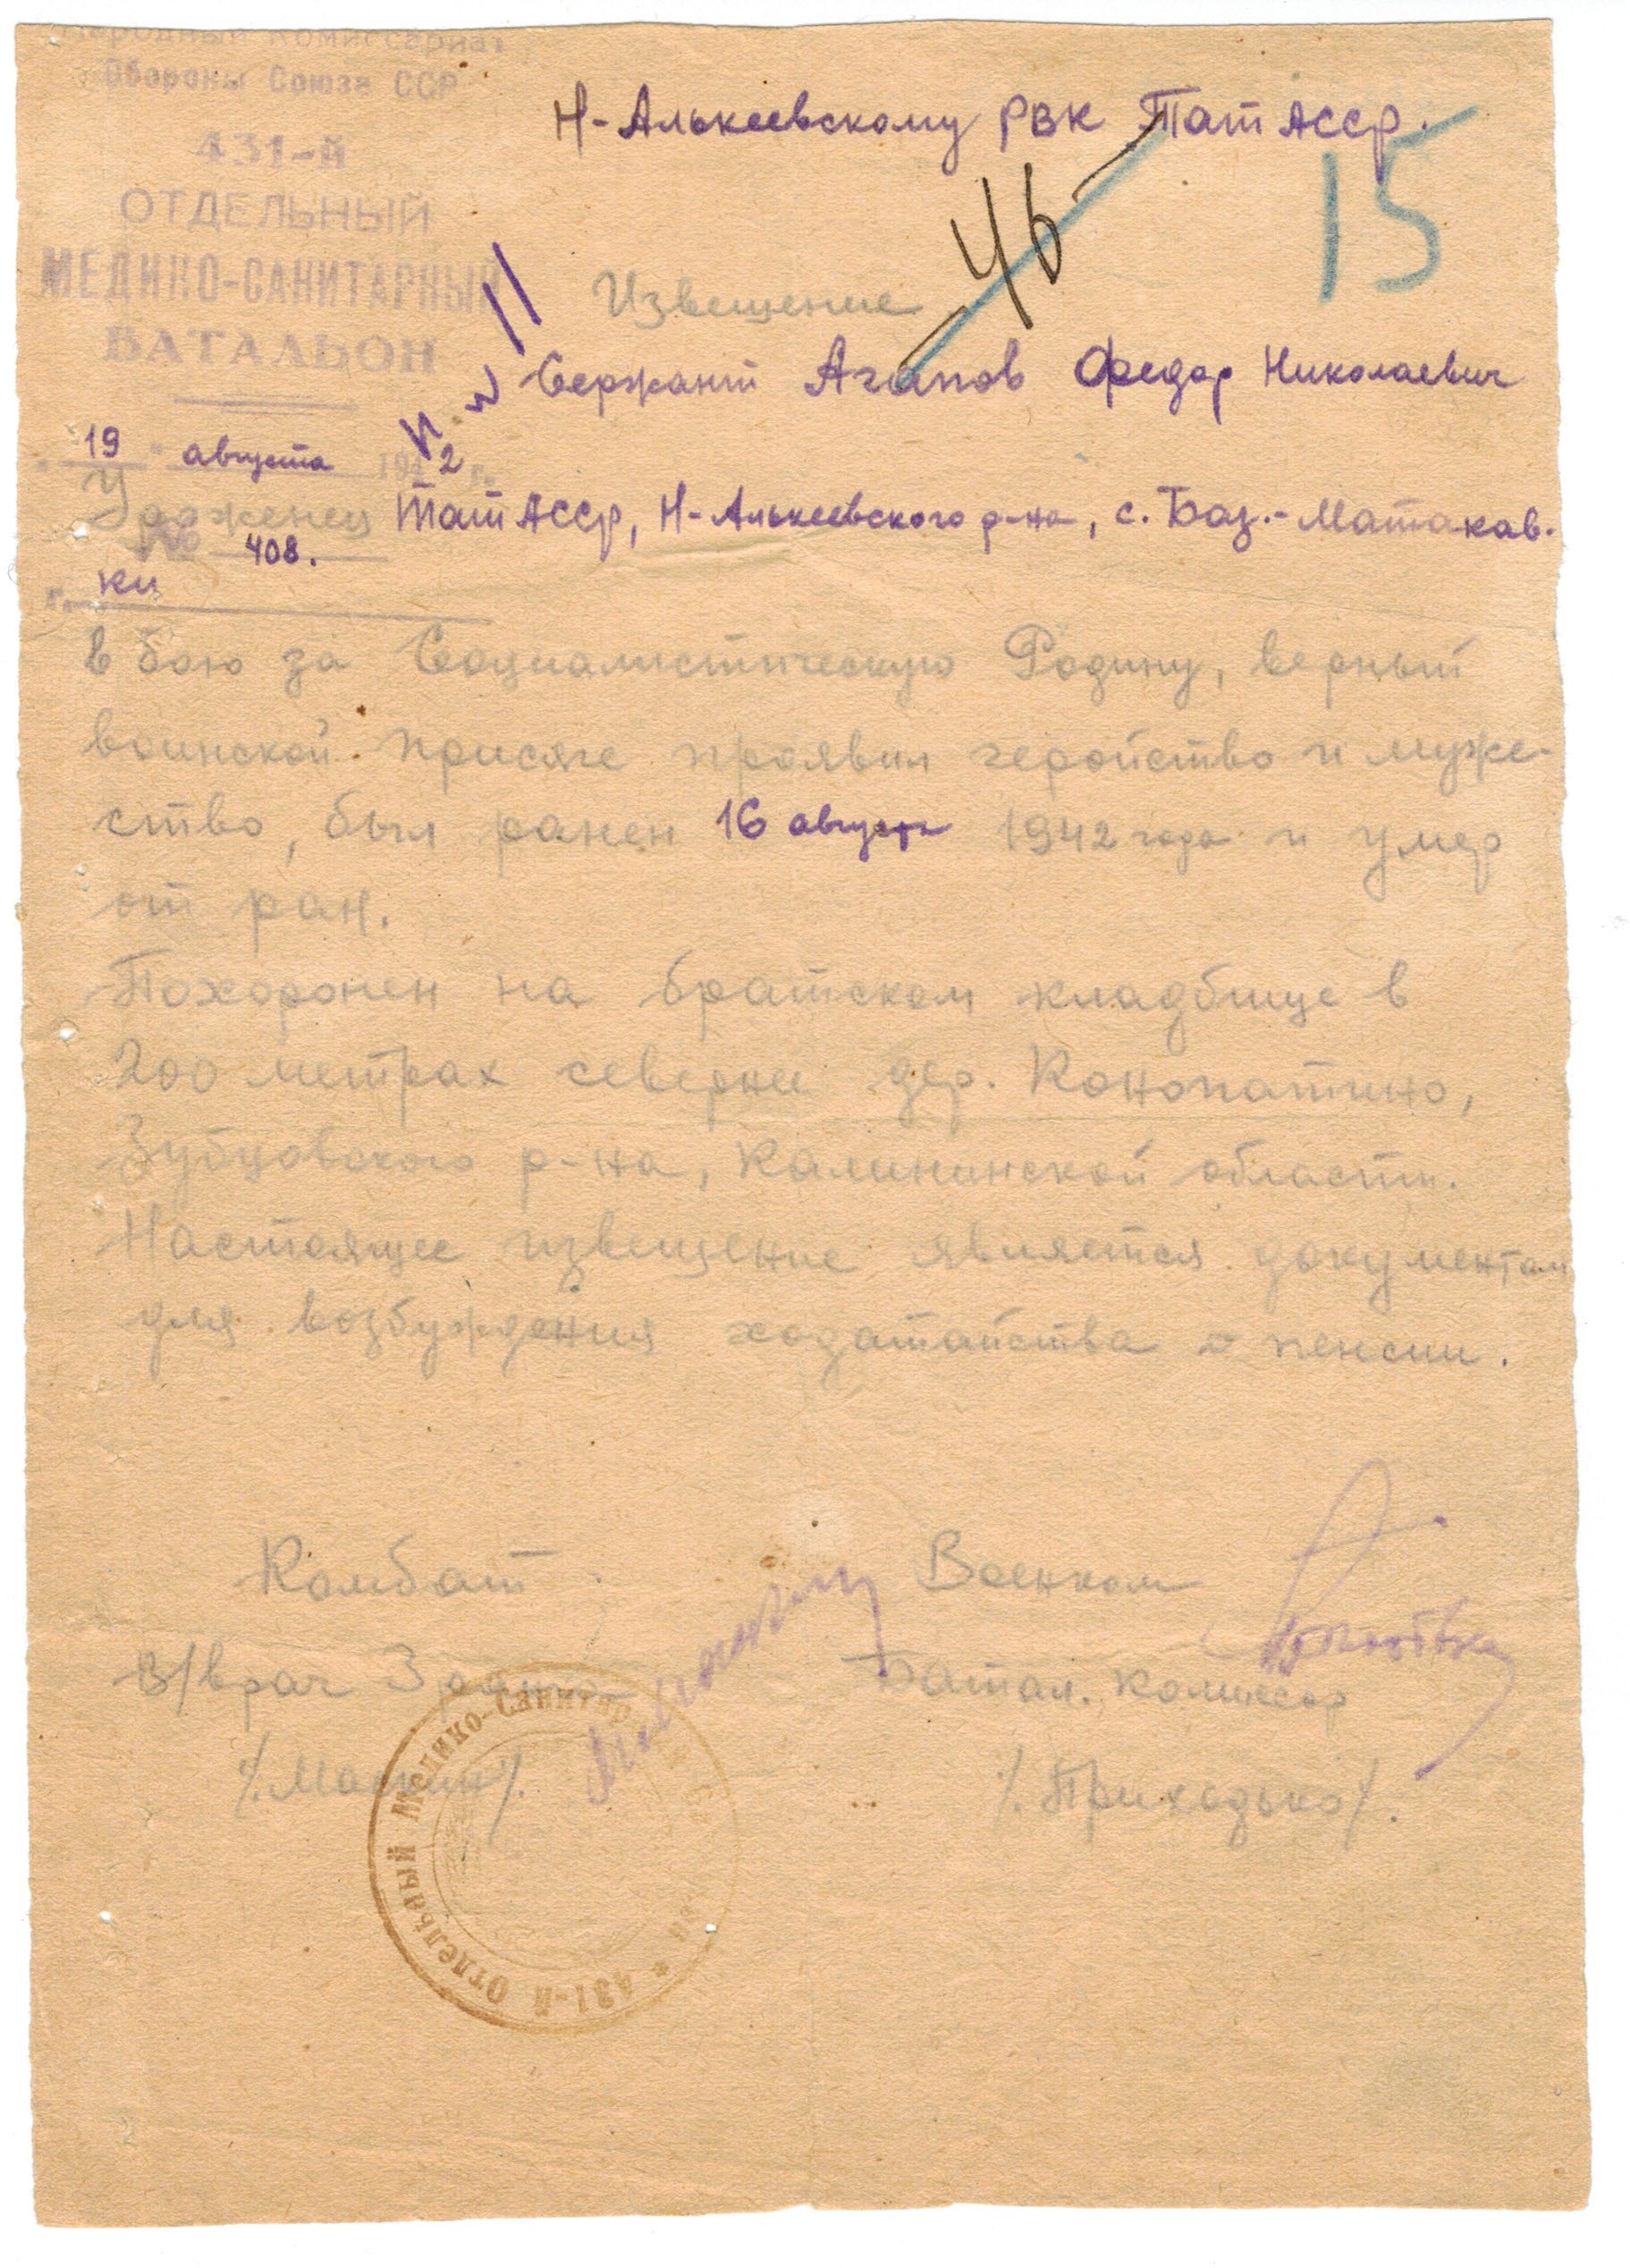 Народный Комиссариат
Обороны Союза ССР
431-й
ОТДЕЛЬНЫЙ
МЕДИКО-САНИТАРНЫЙ
БАТАЛЬОН
"19" августа 1942 г.
№ 408.
Н-Алькеевскому РВК ТатАССР.
46
15
Извещение
Сержант Агапов Федор Николаевич
Уроженец ТатАССР, Н-Алькеевского р-на, с. Баз.-Матакав.
ки
в бою за Социалистическую Родину, верный
воинской присяге проявил геройство и муже-
ство, был ранен 16 августа 1942 года и умер
от ран.
Похоронен на братском кладбище в
200 метрах севернее дер. Конопатино,
Зубцовского р-на, Калининской области.
Настоящее извещение является документом
для возбуждения ходатайства о пенсии.
Комбат Военком
В/врач 3 ранга Батал. Комиссар
/. /. /. Приходько /.
431-й Отдельный Медико-Санитарный